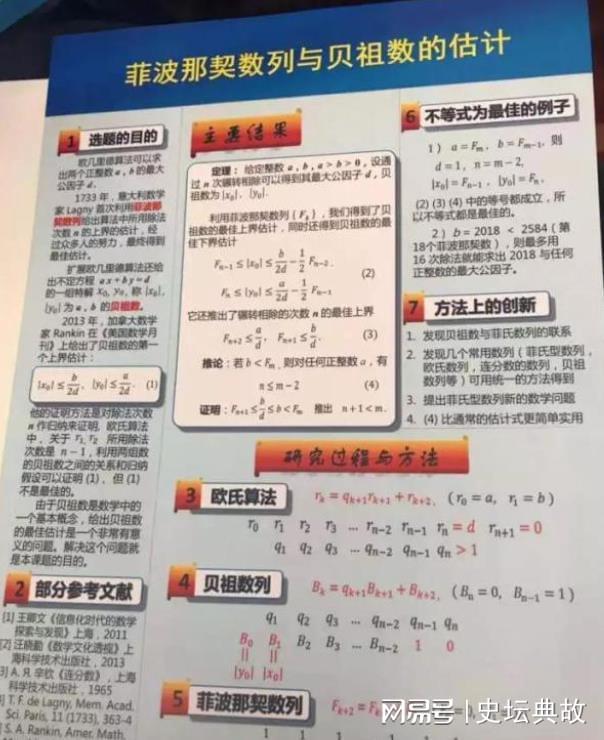 菲波那契数列与贝祖数的估计
1 选题的目的
欧几里德算法可以求
出两个正整数 a, b 的最大
公因子 d.
1733 年，意大利数学
家 Lagny 首次利用菲波那
契数列给出算法中所用除法
次数 n 的上界的估计，经
过众多人的努力，最终得到
最佳估计。
扩展欧几里德算法还给
出不定方程 ax + by = d
的一组特解 x₀, y₀, 称 |x₀|,
|y₀| 为 a, b 的贝祖数。
2013 年，加拿大数学
家 Rankin 在《美国数学月
刊》上给出了贝祖数的第一
个上界估计：
|x₀| ≤ b/2d, |y₀| ≤ a/2d. (1)
他的证明方法是对除法次数
n 作归纳来证明. 欧氏算法
中，关于 r₁, r₂ 所用除法
次数是 n − 1，利用两组数
的贝祖数之间的关系和归纳
假设可以证明 (1)，但 (1)
不是最佳的。
由于贝祖数是数学中的
一个基本概念，给出贝祖数
的最佳估计是一个非常有意
义的问题。解决这个问题就
是本课题的目的。
2 部分参考文献
[1] 王卿文《信息化时代的数学
探索与发现》上海，2011
[2] 汪晓勤《数学文化透视》上
海科学技术出版，2013
3] А. Я. 辛钦《连分数》，上海
科学技术出版，1965
] T. F. de Lagny, Mem. Acad.
Sci. Paris, 11 (1733), 363-4
] S. A. Rankin, Amer. Math.
主要结果
定理：给定整数 a, b, a > b > 0, 设通
过 n 次辗转相除可以得到其最大公因子 d，贝
祖数为 |x₀|, |y₀|.
利用菲波那契数列 { Fₖ }，我们得到了贝
祖数的最佳上界估计，同时还得到贝祖数的最
佳下界估计
Fₙ₋₁ ≤ |x₀| ≤ b/2d − 1/2 Fₙ₋₂,
(2)
Fₙ ≤ |y₀| ≤ a/2d − 1/2 Fₙ₋₁
它还推出了辗转相除的次数 n 的最佳上界
Fₙ₊₂ ≤ a/d, Fₙ₊₁ ≤ b/d. (3)
推论：若 b < Fₘ, 则对任何正整数 a，有
n ≤ m − 2 (4)
证明：Fₙ₊₁ ≤ b/d ≤ b < Fₘ 推出 n + 1 < m.
6 不等式为最佳的例子
1) a = Fₘ, b = Fₘ₋₁, 则
d = 1, n = m − 2,
|x₀| = Fₙ₋₁, |y₀| = Fₙ,
(2) (3) (4) 中的等号都成立，所
以不等式都是最佳的。
2) b = 2018 < 2584 (第
18个菲波那契数)，则最多用
16 次除法就能求出 2018 与任何
正整数的最大公因子。
7 方法上的创新
1. 发现贝祖数与菲氏数列的联系
2. 发现几个常用数列（菲氏型数列，
欧氏数列，连分数的数列，贝祖
数列等）可用统一的方法得到
3. 提出菲氏型数列新的数学问题
4. (4) 比通常的估计式更简单实用
研究过程与方法
3 欧氏算法 rₖ = qₖ₊₁rₖ₊₁ + rₖ₊₂, (r₀ = a, r₁ = b)
r₀ r₁ r₂ r₃ … rₙ₋₂ rₙ₋₁ rₙ = d rₙ₊₁ = 0
q₁ q₂ q₃ … qₙ₋₂ qₙ₋₁ qₙ > 1
4 贝祖数列 Bₖ = qₖ₊₁Bₖ₊₁ + Bₖ₊₂, (Bₙ = 0, Bₙ₋₁ = 1)
q₁ q₂ q₃ … qₙ₋₂ qₙ₋₁ qₙ
B₀ B₁ B₂ B₃ … Bₙ₋₂ 1 0
|| ||
|y₀| |x₀|
5 菲波那契数列 Fₖ₊₂ = Fₖ
网易号 | 史坛典故
1 1 1 1